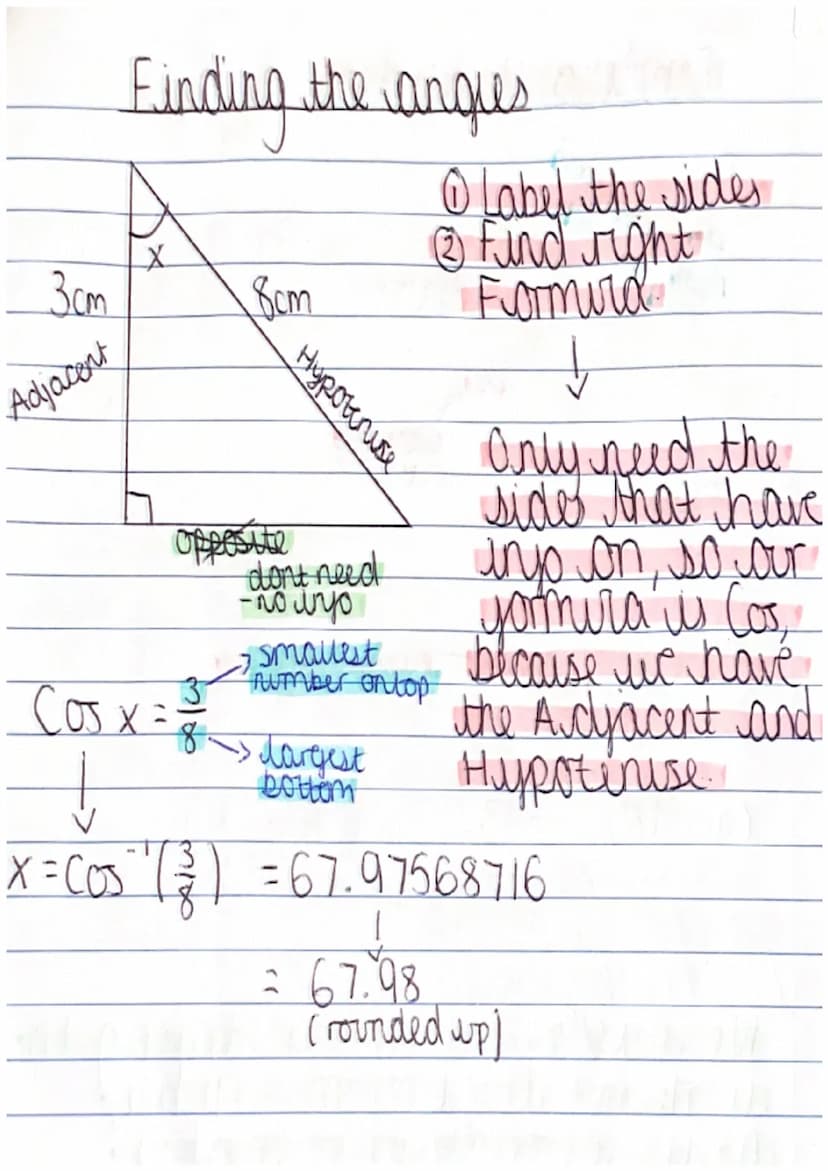 Finding the angles
① Label the sides
② Find right
Formula.
x
3cm
8cm
Adjacent
Hypotenuse
Only need the
sides that have
info on, so our
formula is Cos,
because we have
the Adjacent and
Hypotenuse.
opposite
dont need
- no info
Cos x = 3/8
smallest
number on top
largest
bottom
x = Cos⁻¹(3/8) = 67.97568716
= 67.98
(rounded up)